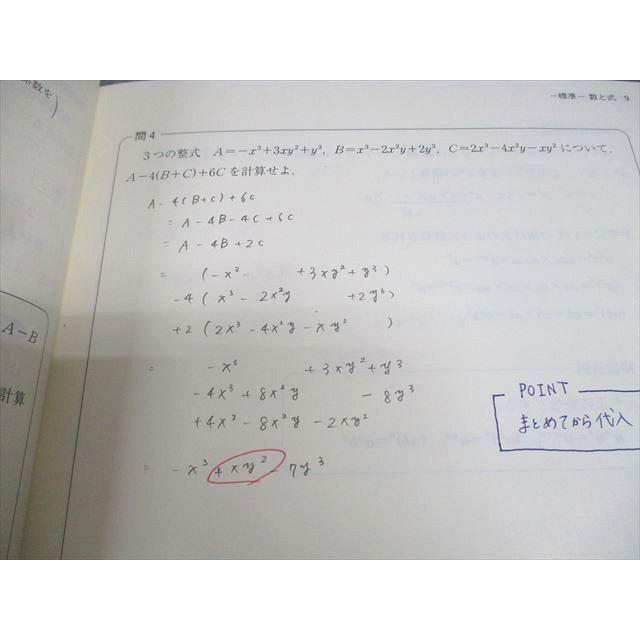 係数を
－標準－ 数と式 9
問4
3つの整式 A＝－x³＋3xy²＋y³，B＝x³－2x²y＋2y³，C＝2x³－4x²y－xy²について，
A－4(B＋C)＋6Cを計算せよ．
A - 4(B+C) + 6C
= A - 4B - 4C + 6C
= A - 4B + 2C
= (-x³ +3xy²+y³)
-4 (x³ - 2x²y +2y³)
+2 (2x³ - 4x²y - xy² )
= -x³ +3xy²+y³
-4x³ + 8x²y - 8y³
+4x³ - 8x²y - 2xy²
= -x³ + xy² - 7y³
A－B
計算
POINT
まとめてから代入